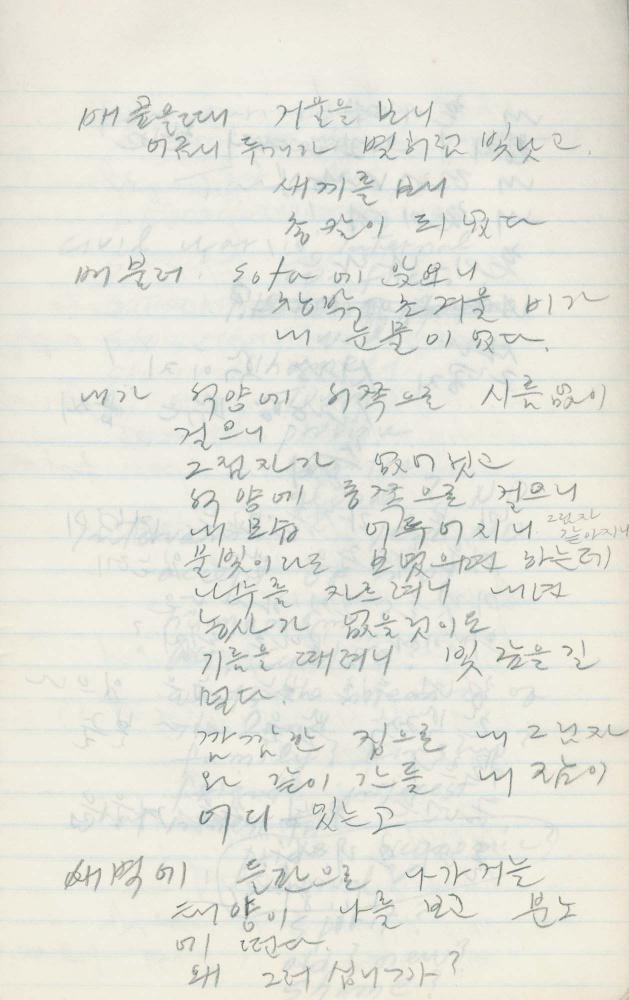 배곺을때 거울을 보니
새끼를 보니
배불러 sofa 에 앉으니
창밖 초겨울 비가
내 눈물이 였다.
내가 석양에 서쪽으로 시름없이
걸으니
그림자가 없어 보이고
석양에 동쪽으로 걸으니
내 모습 어두어지니 그림자 같아지니
불빛이라도 보였으면 하는데
나무를 자르려니 내년
농사가 없을것이오
기름을 때려니 빚 갚을 길
멀다.
깜깜한 집으로 내 그림자
와 같이 가는 내 짐이
어디 있는고
새벽에 들판으로 나가거늘
태양이 나를 보고 분노
에 떤다.
왜 그러십니까?